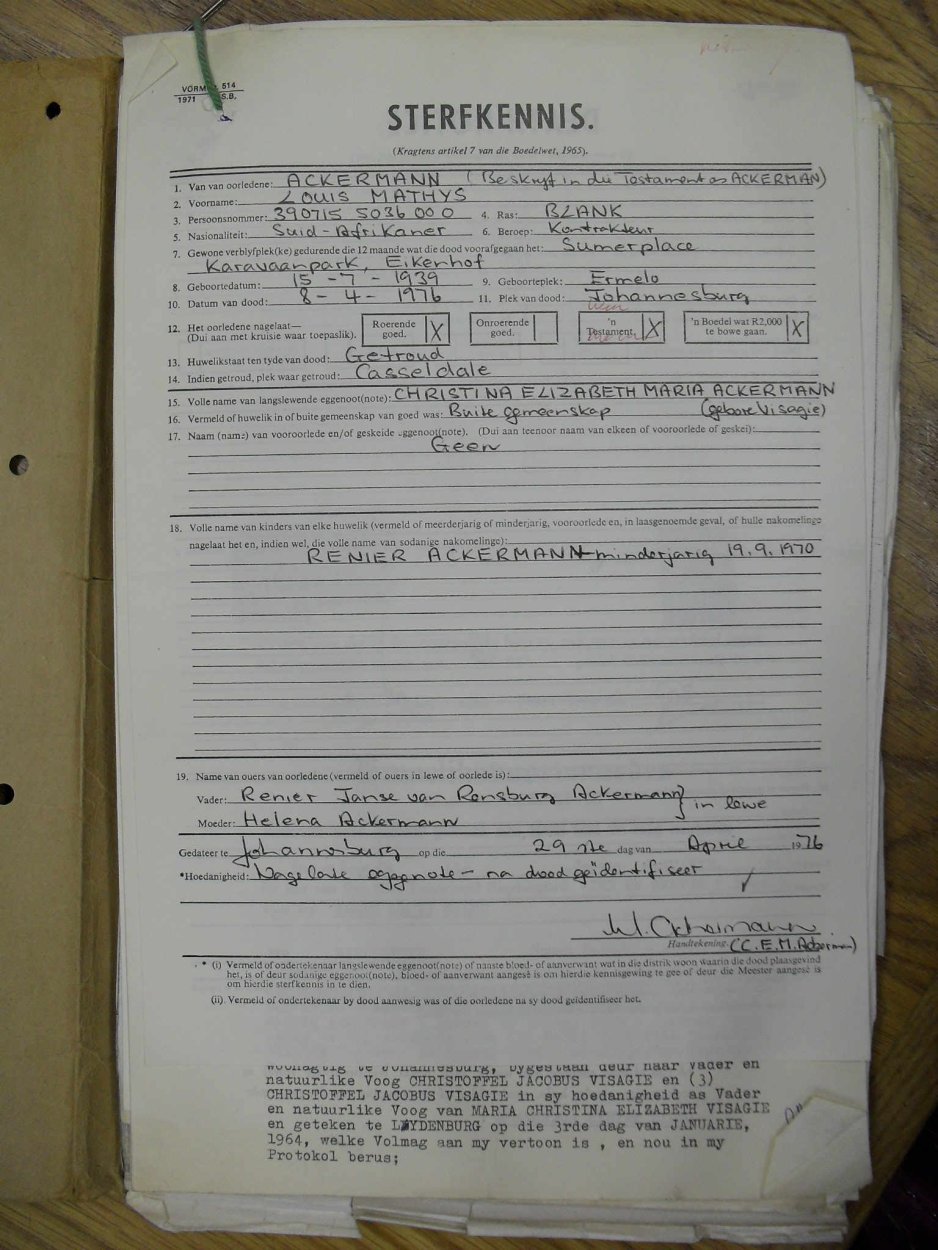 VORM 514
1971 S.B.
STERFKENNIS.
(Kragtens artikel 7 van die Boedelwet, 1965).
1. Van van oorledene: ACKERMANN (Beskryf in die Testament as ACKERMAN)
2. Voorname: LOUIS MATHYS
3. Persoonsnommer: 390715 5036 00 0 4. Ras: BLANK
5. Nasionaliteit: Suid-Afrikaner 6. Beroep: Kontrakteur
7. Gewone verblyfplek(ke) gedurende die 12 maande wat die dood voorafgegaan het: Sumerplace
Karavaanpark, Eikenhof
8. Geboortedatum: 15 - 7 - 1939 9. Geboorteplek: Ermelo
10. Datum van dood: 8 - 4 - 1976 11. Plek van dood: Johannesburg
12. Het oorledene nagelaat— Roerende goed. X Onroerende goed. 'n Testament. X 'n Boedel wat R2,000 te bowe gaan. X
(Dui aan met kruisie waar toepaslik).
13. Huwelikstaat ten tyde van dood: Getroud
14. Indien getroud, plek waar getroud: Casseldale
15. Volle name van langslewende eggenoot(note): CHRISTINA ELIZABETH MARIA ACKERMANN
16. Vermeld of huwelik in of buite gemeenskap van goed was: Buite gemeenskap (gebore Visagie)
17. Naam (name) van vooroorlede en/of geskeide eggenoot(note). (Dui aan teenoor naam van elkeen of vooroorlede of geskei):
Geen
18. Volle name van kinders van elke huwelik (vermeld of meerderjarig of minderjarig, vooroorlede en, in laasgenoemde geval, of hulle nakomelinge
nagelaat het en, indien wel, die volle name van sodanige nakomelinge):
RENIER ACKERMANN - minderjarig 19.9.1970
19. Name van ouers van oorledene (vermeld of ouers in lewe of oorlede is):
Vader: Renier Janse van Rensburg Ackermann } in lewe
Moeder: Helena Ackermann
Gedateer te Johannesburg op die 29 ste dag van April 1976
*Hoedanigheid: Nagelate eggenote - na dood geïdentifiseer
Handtekening. (C.E.M. Ackerman)
* (i) Vermeld of ondertekenaar langslewende eggenoot(note) of naaste bloed- of aanverwant wat in die distrik woon waarin die dood plaasgevind
het, is of deur sodanige eggenoot(note), bloed- of aanverwant aangesê is om hierdie kennisgewing te gee of deur die Meester aangesê is
om hierdie sterfkennis in te dien.
(ii) Vermeld of ondertekenaar by dood aanwesig was of die oorledene na sy dood geïdentifiseer het.
woonagtig te Johannesburg, bygestaan deur haar vader en
natuurlike Voog CHRISTOFFEL JACOBUS VISAGIE en (3)
CHRISTOFFEL JACOBUS VISAGIE in sy hoedanigheid as Vader
en natuurlike Voog van MARIA CHRISTINA ELIZABETH VISAGIE
en geteken te LYDENBURG op die 3rde dag van JANUARIE,
1964, welke Volmag aan my vertoon is , en nou in my
Protokol berus;